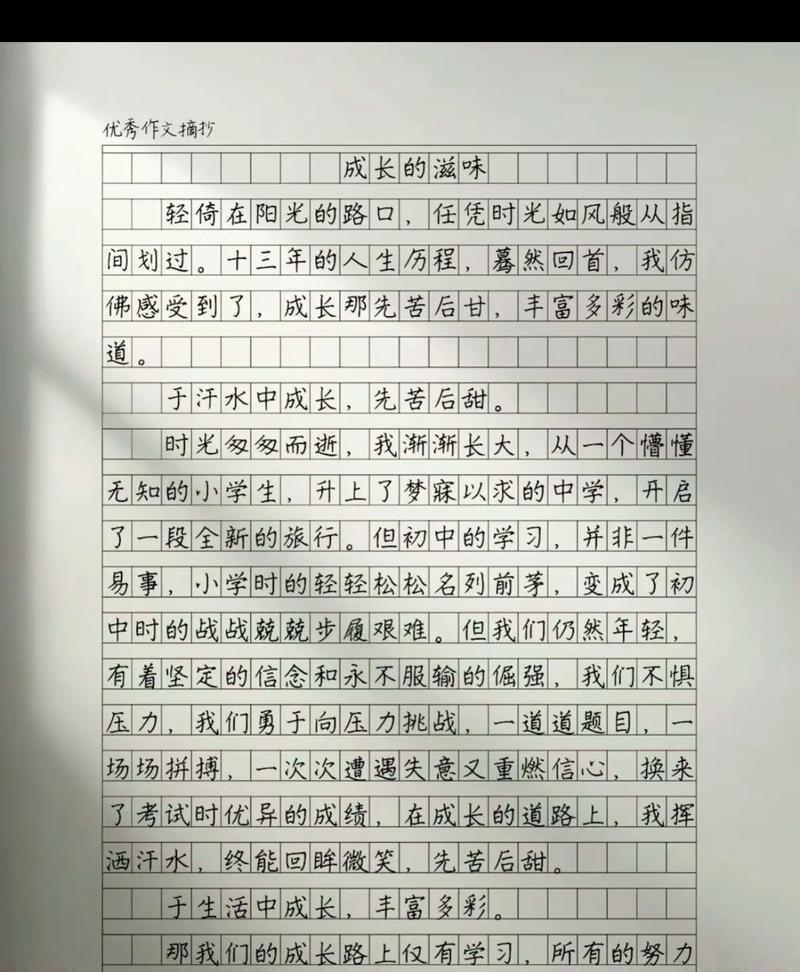 优秀作文摘抄
成长的滋味
轻倚在阳光的路口，任凭时光如风般从指
间划过。十三年的人生历程，蓦然回首，我仿
佛感受到了，成长那先苦后甘，丰富多彩的味
道。
于汗水中成长，先苦后甜。
时光匆匆而逝，我渐渐长大，从一个懵懂
无知的小学生，升上了梦寐以求的中学，开启
了一段全新的旅行。但初中的学习，并非一件
易事，小学时的轻轻松松名列前茅，变成了初
中时的战战兢兢步履艰难。但我们仍然年轻，
有着坚定的信念和永不服输的倔强，我们不惧
压力，我们勇于向压力挑战，一道道题目，一
场场拼搏，一次次遭遇失意又重燃信心，换来
了考试时优异的成绩，在成长的道路上，我挥
洒汗水，终能回眸微笑，先苦后甜。
于生活中成长，丰富多彩。
那我们的成长路上仅有学习，所有的努力